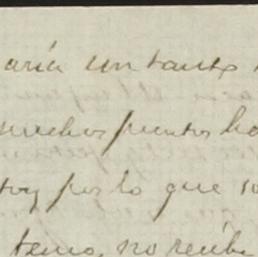 aría un tanto
muchos puntos ha
toy por lo que so
temo, no recibe